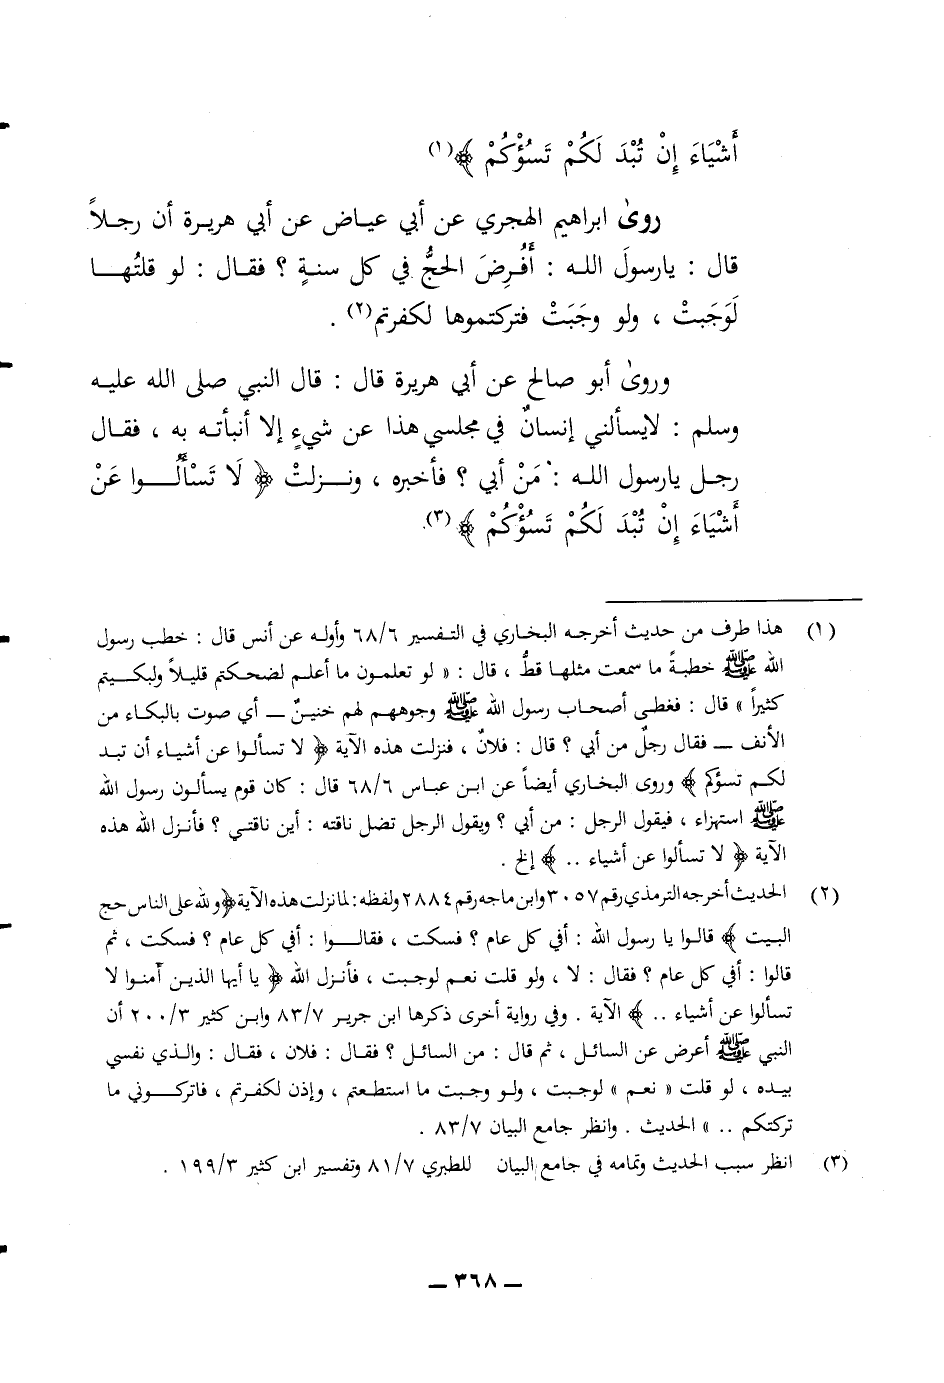 أَشْيَاءَ إِنْ تُبْدَ لَكُمْ تَسُؤْكُمْ ﴾(١)
روىٰ ابراهيم الهجري عن أبي عياض عن أبي هريرة أن رجلاً
قال : يارسولَ الله : أَفُرِضَ الحجُّ في كل سنةٍ ؟ فقال : لو قلتُها
لَوَجَبتْ ، ولو وجَبَتْ فتركتموها لكفرتم(٢) .
وروىٰ أبو صالح عن أبي هريرة قال : قال النبي صلى الله عليه
وسلم : لايسألني إنسانٌ في مجلسي هذا عن شيءٍ إلا أنبأته به ، فقال
رجل يارسول الله : مَنْ أبي ؟ فأخبره ، ونزلتْ ﴿ لَا تَسْأَلُوا عَنْ
أَشْيَاءَ إِنْ تُبْدَ لَكُمْ تَسُؤْكُمْ ﴾(٣).
(١) هذا طرف من حديث أخرجه البخاري في التفسير ٦٨/٦ وأوله عن أنس قال : خطب رسول
الله ﷺ خطبةً ما سمعت مثلها قطُّ ، قال : « لو تعلمون ما أعلم لضحكتم قليلاً ولبكيتم
كثيراً » قال : فغطى أصحاب رسول الله ﷺ وجوههم لهم خنينٌ ــ أي صوت بالبكاء من
الأنف ــ فقال رجلٌ من أبي ؟ قال : فلانٌ ، فنزلت هذه الآية ﴿ لا تسألوا عن أشياء أن تبد
لكم تسؤكم ﴾ وروى البخاري أيضاً عن ابن عباس ٦٨/٦ قال : كان قوم يسألون رسول الله
ﷺ استهزاء ، فيقول الرجل : من أبي ؟ ويقول الرجل تضل ناقته : أين ناقتي ؟ فأنزل الله هذه
الآية ﴿ لا تسألوا عن أشياء .. ﴾ إلخ .
(٢) الحديث أخرجه الترمذي رقم ٣٠٥٧ وابن ماجه رقم ٢٨٨٤ ولفظه : لما نزلت هذه الآية ﴿ولله على الناس حج
البيت ﴾ قالوا يا رسول الله : أفي كل عام ؟ فسكت ، فقالوا : أفي كل عام ؟ فسكت ، ثم
قالوا : أفي كل عام ؟ فقال : لا ، ولو قلت نعم لوجبت ، فأنزل الله ﴿ يا أيها الذين آمنوا لا
تسألوا عن أشياء .. ﴾ الآية . وفي رواية أخرى ذكرها ابن جرير ٨٣/٧ وابن كثير ٢٠٠/٣ أن
النبي ﷺ أعرض عن السائل ، ثم قال : من السائل ؟ فقال : فلان ، فقال : والذي نفسي
بيده ، لو قلت « نعم » لوجبت ، ولو وجبت ما استطعتم ، وإذن لكفرتم ، فاتركوني ما
تركتكم .. » الحديث . وانظر جامع البيان ٨٣/٧ .
(٣) انظر سبب الحديث وتمامه في جامع البيان للطبري ٨١/٧ وتفسير ابن كثير ١٩٩/٣ .
ــ ٣٦٨ ــ